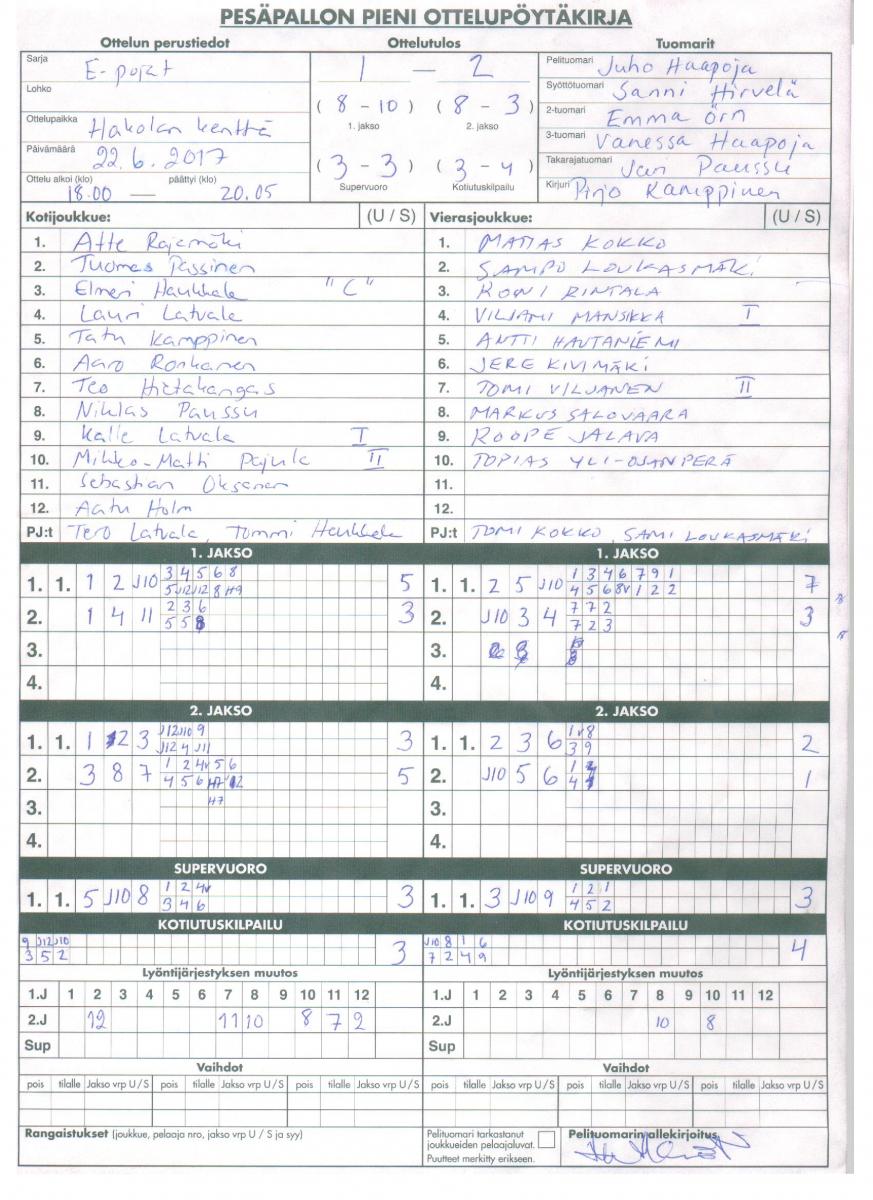 PESÄPALLON PIENI OTTELUPÖYTÄKIRJA
Ottelun perustiedot Ottelutulos Tuomarit
Sarja E-pojat 1 – 2 Pelituomari Juho Haapoja
Lohko Syöttötuomari Sanni Hirvelä
(8 – 10) (8 – 3)
1. jakso 2. jakso
Ottelupaikka Hakolan kenttä 2-tuomari Emma Örn
Päivämäärä 22.6.2017 3-tuomari Vanessa Haapoja
(3 – 3) (3 – 4)
Supervuoro Kotiutuskilpailu
Takarajatuomari Jari Paussu
Ottelu alkoi (klo) päättyi (klo)
18.00 — 20.05
Kirjuri Pirjo Kamppinen
Kotijoukkue: (U / S) Vierasjoukkue: (U / S)
1. Atte Rajamäki 1. MATIAS KOKKO
2. Tuomas Passinen 2. SAMPO LOUKASMÄKI
3. Elmeri Haukkala "C" 3. RONI RINTALA
4. Lauri Latvala 4. VILJAMI MANSIKKA I
5. Tatu Kamppinen 5. ANTTI HAUTANIEMI
6. Aaro Ronkanen 6. JERE KIVIMÄKI
7. Teo Hietakangas 7. TOMI VILJANEN II
8. Niklas Paussu 8. MARKUS SALOVAARA
9. Kalle Latvala I 9. ROOPE JALAVA
10. Mikko-Matti Pajula II 10. TOPIAS YLI-OJANPERÄ
11. Sebastian Oksanen 11.
12. Aatu Holm 12.
PJ:t Tero Latvala, Tommi Haukkala PJ:t TOMI KOKKO, SAMI LOUKASMÄKI
1. JAKSO 1. JAKSO
3 4 5 6 8 1 3 4 6 7 9 1
1. 1. 1 2 J10 5 J12 J12 8 H9 5 1. 1. 2 5 J10 4 5 6 8V 1 2 2 7
2 3 6 7 7 2
2. 1 4 11 5 5 8 3 2. J10 3 4 7 2 3 3
3. 3.
4. 4.
2. JAKSO 2. JAKSO
J12 J10 9 1V 8
1. 1. 1 2 3 J12 4 J11 3 1. 1. 2 3 6 3 9 2
1 2 4V 5 6
2. 3 8 7 4 5 6 5 2. J10 5 6 1
H7
3. 3.
4. 4.
SUPERVUORO SUPERVUORO
1 2 4V 1 2 1
1. 1. 5 J10 8 3 4 6 3 1. 1. 3 J10 9 4 5 2 3
KOTIUTUSKILPAILU KOTIUTUSKILPAILU
9 J12 J10 J10 8 1 6
3 5 2 3 7 2 4 9 4
Lyöntijärjestyksen muutos Lyöntijärjestyksen muutos
1.J 1 2 3 4 5 6 7 8 9 10 11 12 1.J 1 2 3 4 5 6 7 8 9 10 11 12
2.J 12 11 10 8 7 2 2.J 10 8
Sup Sup
Vaihdot Vaihdot
pois tilalle Jakso vrp U / S pois tilalle Jakso vrp U / S pois tilalle Jakso vrp U / S pois tilalle Jakso vrp U / S pois tilalle Jakso vrp U / S pois tilalle Jakso vrp U / S
Rangaistukset (joukkue, pelaaja nro, jakso vrp U / S ja syy) Pelituomari tarkastanut Pelituomarin allekirjoitus
joukkueiden pelaajaluvat.
Puutteet merkitty erikseen.